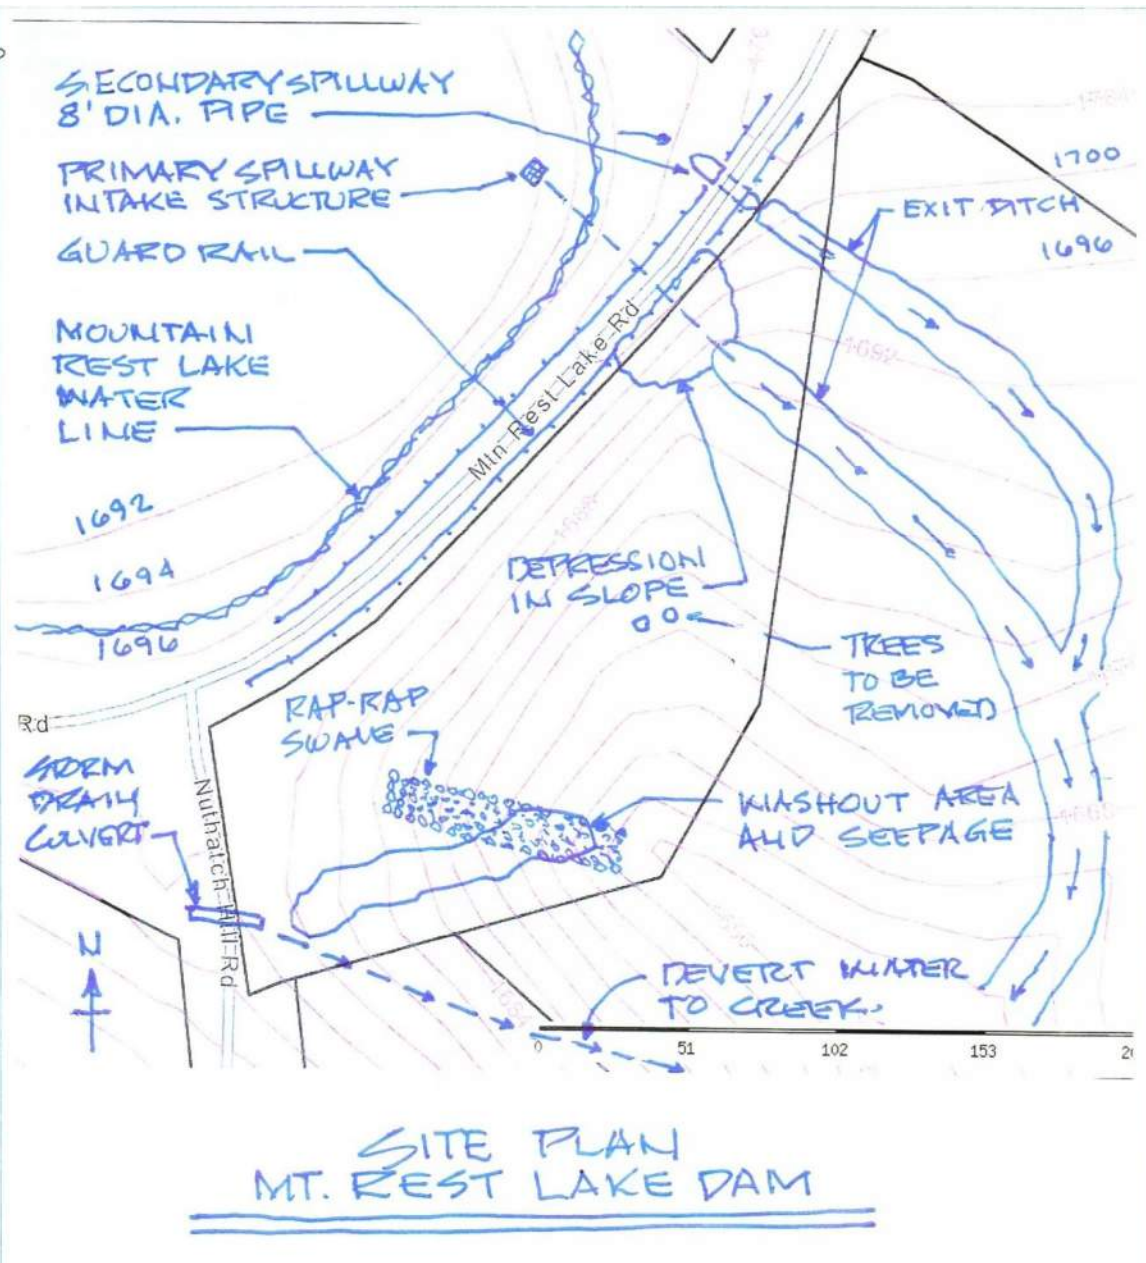 SECONDARY SPILLWAY
8' DIA. PIPE
PRIMARY SPILLWAY
INTAKE STRUCTURE
GUARD RAIL
MOUNTAIN
REST LAKE
WATER
LINE
1692
1694
1696
1700
1696
EXIT DITCH
1692
Mtn Rest Lake Rd
DEPRESSION
IN SLOPE
TREES
TO BE
REMOVED
Rd
RAP-RAP
SWALE
STORM
DRAIN
CULVERT
Nuthatch Hill Rd
WASHOUT AREA
AND SEEPAGE
N
DEVERT WATER
TO CREEK.
0 51 102 153
SITE PLAN
MT. REST LAKE DAM